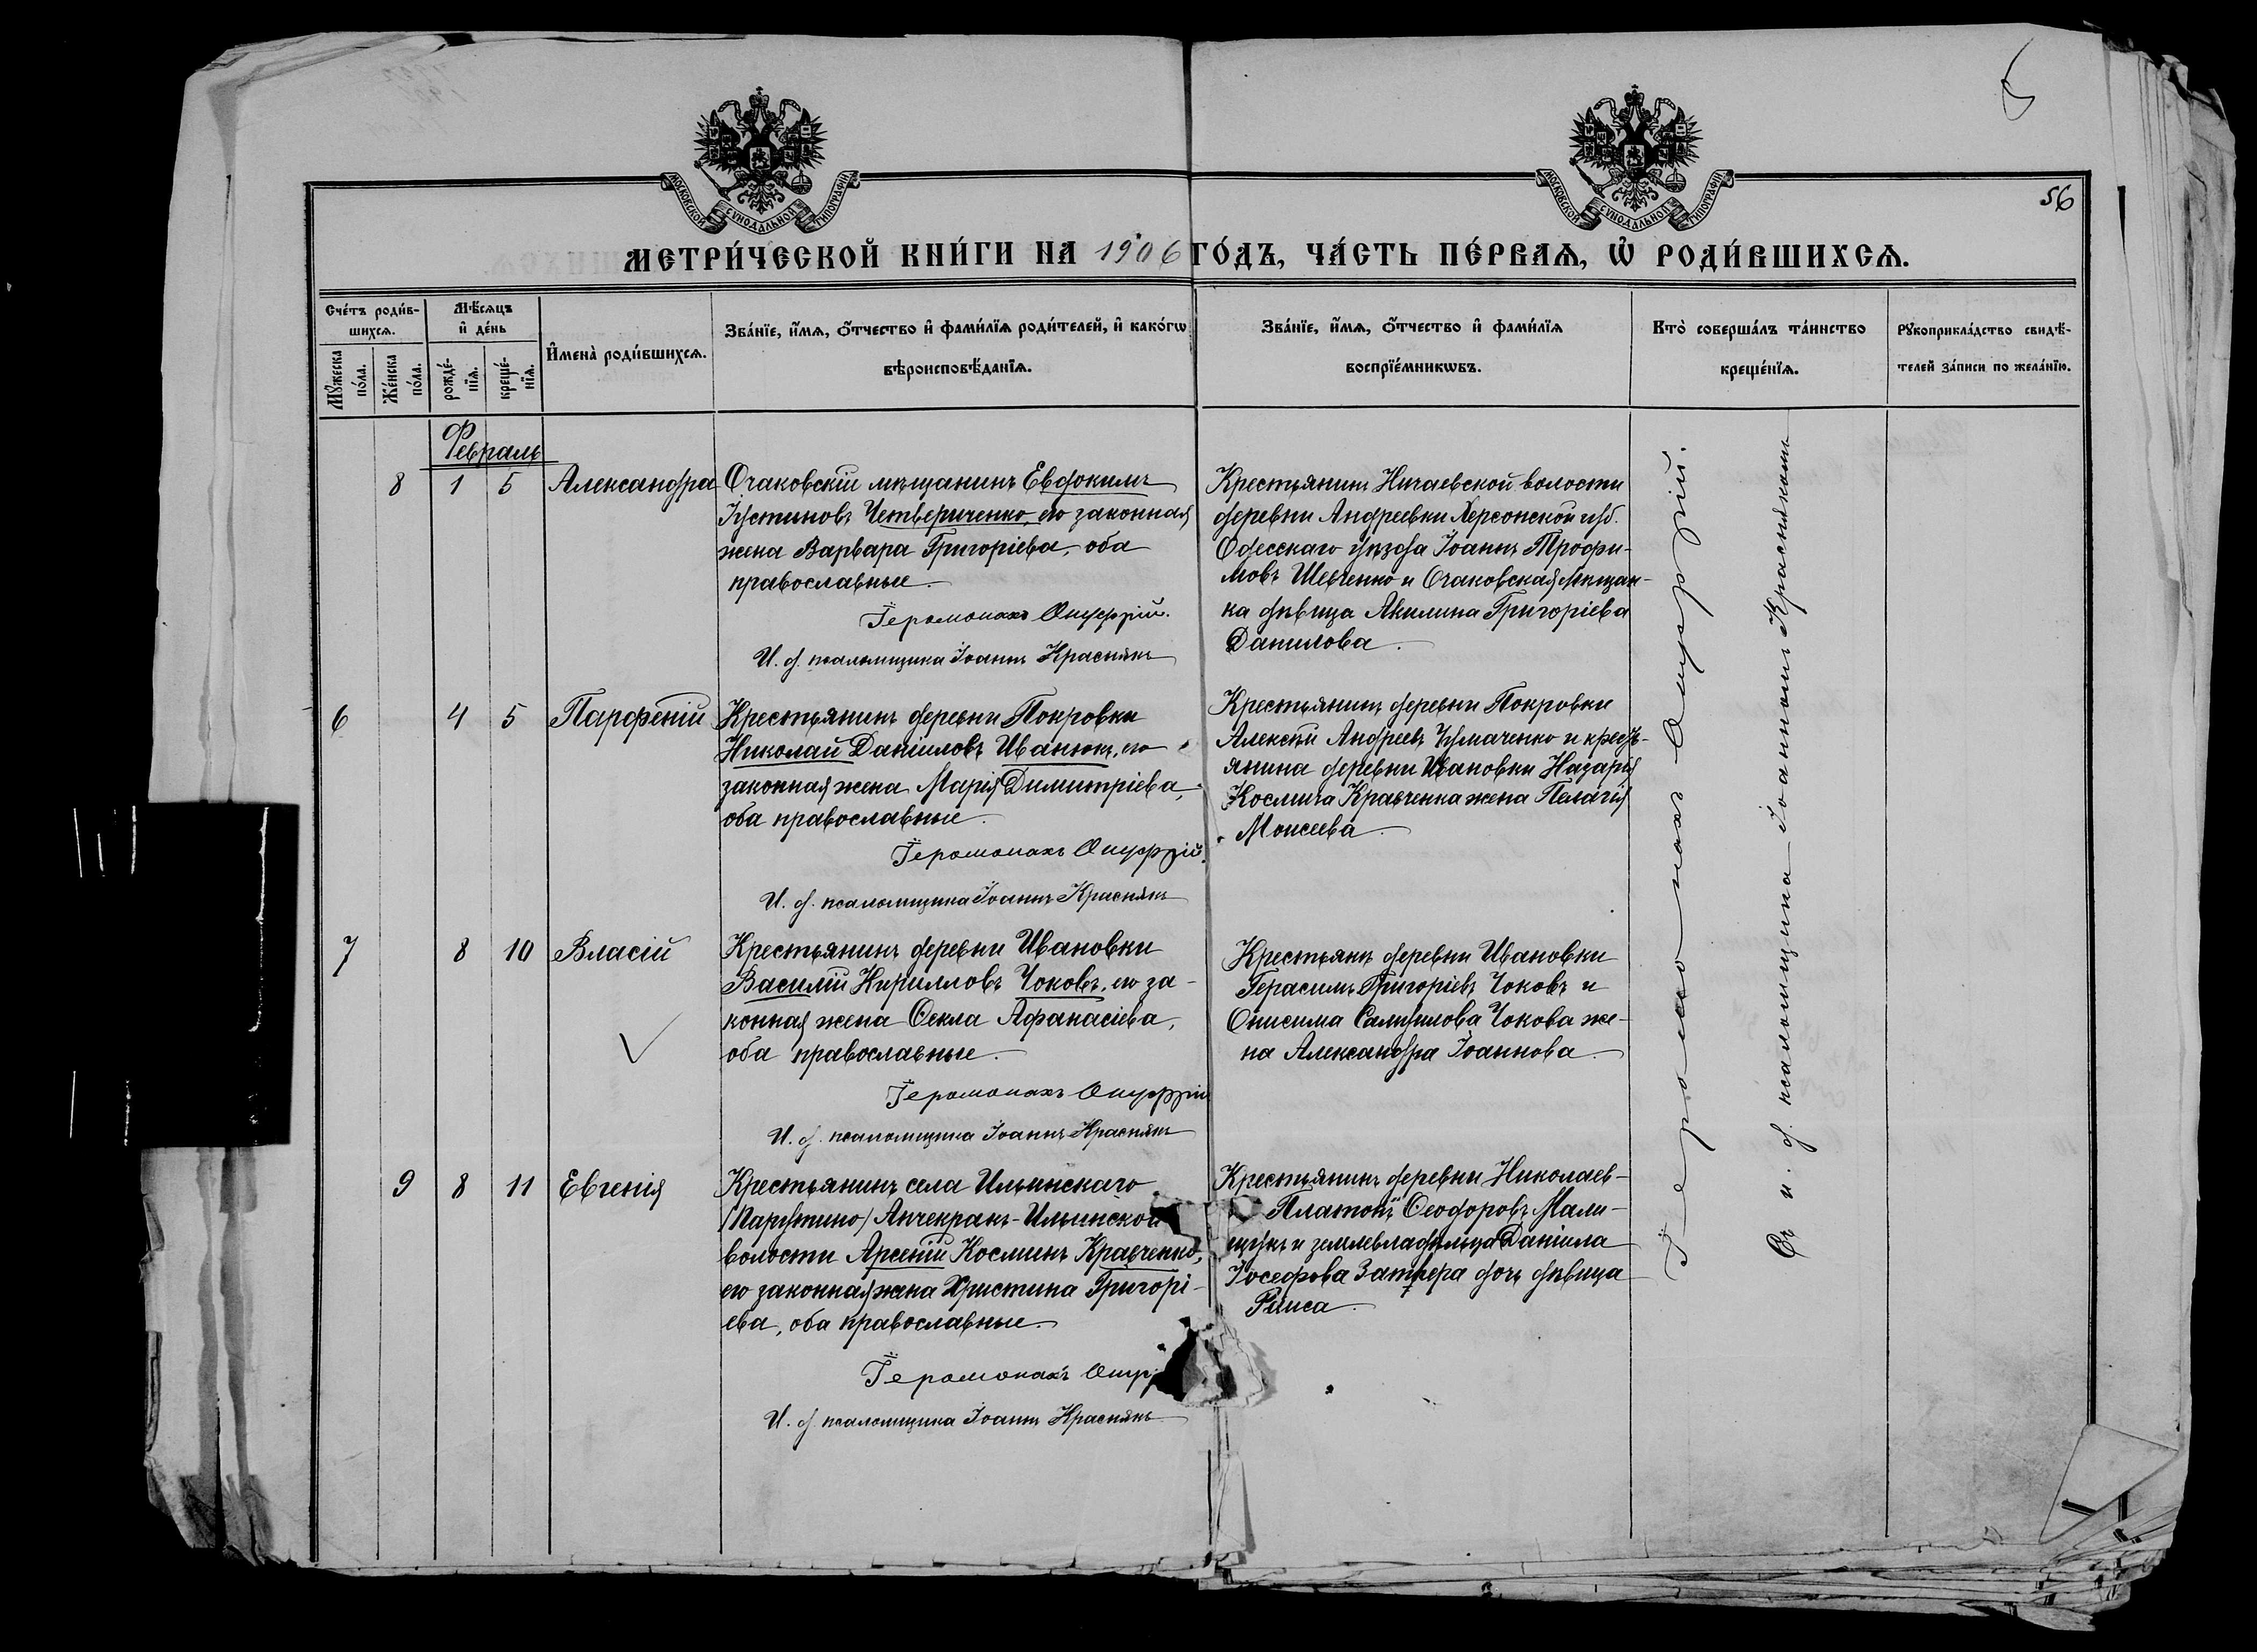 МОСКОВСКОЙ СѴНОДАЛЬНОЙ ТИПОГРАФІИ
МОСКОВСКОЙ СѴНОДАЛЬНОЙ ТИПОГРАФІИ
56
МЕТРИ́ЧЕСКОЙ КНИ́ГИ НА 1906 ГО́ДЪ, ЧА́СТЬ ПЕ́РВАѦ, Ѡ҆ РОДИ́ВШИХСѦ.
Сче́тъ роди́в-
шихсѧ.
Мꙋ́жеска по́ла.
Же́нска по́ла.
Мѣ́сѧцъ и҆ де́нь
рожде́-нїѧ.
креще́-нїѧ.
И҆мена̀ роди́вшихсѧ.
Зва́нїе, и҆́мѧ, ѻ҆́тчество и҆ фами́лїѧ роди́телей, и҆ како́гѡ
вѣроисповѣ́данїѧ.
Зва́нїе, и҆́мѧ, ѻ҆́тчество и҆ фами́лїѧ
воспрїе́мникѡвъ.
Кто̀ соверша́лъ та́инство
креще́нїѧ.
Рꙋкоприкла́дство свидѣ́-
телей за́писи по жела́нїю.
Февраль
8 1 5 Александра
Очаковскій мѣщанинъ Евдокимъ
Іустиновъ Четвериченко, его законная
жена Варвара Григоріева, оба
православные.
Іеромонахъ Онуфрій.
И. д. псаломщика Іоаннъ Краснякъ
Крестьянинъ Ничаевской волости
деревни Андреевки Херсонской губ.
Одесскаго уѣзда Іоаннъ Трофи-
мовъ Шевченко и Очаковская мѣщан-
ка дѣвица Акилина Григоріева
Данилова.
6 4 5 Парфеній
Крестьянинъ деревни Покровки
Николай Даніиловъ Иванюкъ, его
законная жена Марія Димитріева,
оба православные.
Іеромонахъ Онуфрій.
И. д. псаломщика Іоаннъ Краснякъ
Крестьянинъ деревни Покровки
Алексѣй Андреевъ Чумаченко и кресть-
янина деревни Ивановки Назарія
Космича Кравченка жена Пелагія
Моисеева.
7 8 10 Власій
Крестьянинъ деревни Ивановки
Василій Кирилловъ Чоковъ, его за-
конная жена Ѳекла Афанасіева,
оба православные.
Іеромонахъ Онуфрій
И. д. псаломщика Іоаннъ Краснякъ
Крестьянъ деревни Ивановки
Герасимъ Григоріевъ Чоковъ и
Онисима Самуилова Чокова же-
на Александра Іоаннова.
9 8 11 Евгенія
Крестьянинъ села Ильинскаго
/Парутино/ Анчекракъ-Ильинской
волости Арсеній Косминъ Кравченко,
его законная жена Христина Григорі-
ева, оба православные.
Іеромонахъ
И. д. псаломщика Іоаннъ Краснякъ
Крестьянинъ деревни Николаев-
Платонъ Ѳеодоровъ Мали-
щукъ и землевладѣльца Даніила
Іосефова дочь дѣвица
Раиса.
Іеромонахъ Онуфрій.
Съ и. д. псаломщика Іоанномъ Краснякомъ